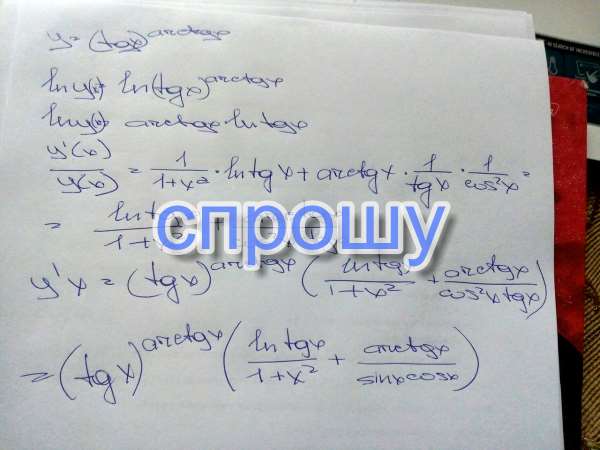 y = (tgx)^arctgx
ln y(x) = ln(tgx)^arctgx
ln y(x) = arctgx · ln tgx
y'(x)/y(x) = 1/(1+x²) · ln tgx + arctgx · 1/tgx · 1/cos²x =
= ln tgx/(1+x²) +
спрошу
y'x = (tgx)^arctgx (ln tgx/(1+x²) + arctgx/(cos²x tgx))
= (tgx)^arctgx (ln tgx/(1+x²) + arctgx/(sinx cosx))